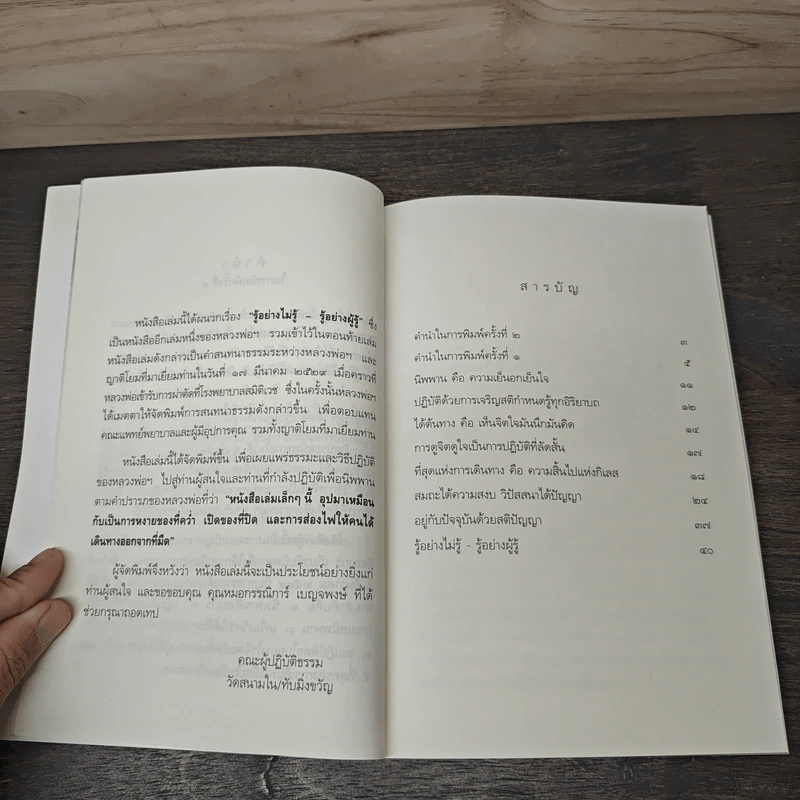 หนังสือเล่มนี้ได้ผนวกเรื่อง "รู้อย่างไม่รู้ – รู้อย่างผู้รู้" ซึ่ง
เป็นหนังสืออีกเล่มหนึ่งของหลวงพ่อฯ รวมเข้าไว้ในตอนท้ายเล่ม
หนังสือเล่มดังกล่าวเป็นคำสนทนาธรรมระหว่างหลวงพ่อฯ และ
ญาติโยมที่มาเยี่ยมท่านในวันที่ ๑๗ มีนาคม ๒๕๒๙ เมื่อคราวที่
หลวงพ่อเข้ารับการผ่าตัดที่โรงพยาบาลสมิติเวช ซึ่งในครั้งนั้นหลวงพ่อฯ
ได้เมตตาให้จัดพิมพ์การสนทนาธรรมดังกล่าวขึ้น เพื่อตอบแทน
คณะแพทย์พยาบาลและผู้มีอุปการคุณ รวมทั้งญาติโยมที่มาเยี่ยมท่าน
หนังสือเล่มนี้ได้จัดพิมพ์ขึ้น เพื่อเผยแพร่ธรรมะและวิธีปฏิบัติ
ของหลวงพ่อฯ ไปสู่ท่านผู้สนใจและท่านที่กำลังปฏิบัติเพื่อนิพพาน
ตามคำปรารภของหลวงพ่อที่ว่า "หนังสือเล่มเล็กๆ นี้ อุปมาเหมือน
กับเป็นการหงายของที่คว่ำ เปิดของที่ปิด และการส่องไฟให้คนได้
เดินทางออกจากที่มืด"
ผู้จัดพิมพ์จึงหวังว่า หนังสือเล่มนี้จะเป็นประโยชน์อย่างยิ่งแก่
ท่านผู้สนใจ และขอขอบคุณ คุณหมอกรรณิการ์ เบญจพงษ์ ที่ได้
ช่วยกรุณาถอดเทป
คณะผู้ปฏิบัติธรรม
วัดสนามใน/ทับมิ่งขวัญ
สารบัญ
คำนำในการพิมพ์ครั้งที่ ๒ ๓
คำนำในการพิมพ์ครั้งที่ ๑ ๕
นิพพาน คือ ความเย็นอกเย็นใจ ๑๑
ปฏิบัติด้วยการเจริญสติกำหนดรู้ทุกอิริยาบถ ๑๒
ได้ต้นทาง คือ เห็นจิตใจมันนึกมันคิด ๑๔
การดูจิตดูใจเป็นการปฏิบัติที่ลัดสั้น ๑๗
ที่สุดแห่งการเดินทาง คือ ความสิ้นไปแห่งกิเลส ๑๘
สมถะได้ความสงบ วิปัสสนาได้ปัญญา ๒๔
อยู่กับปัจจุบันด้วยสติปัญญา ๓๗
รู้อย่างไม่รู้ - รู้อย่างผู้รู้ ๔๐